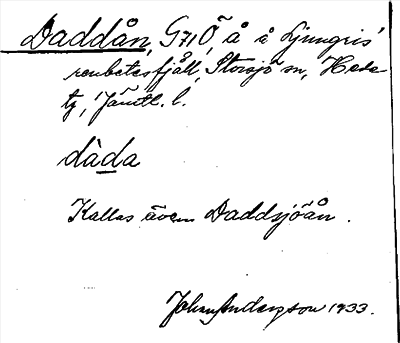 Daddån, G71Ö, å å Ljungris'
renbetesfjäll, Storsjö sn, Hede
tg, Jämtl. l.
dàda
Kallas även Daddsjöån.
Johan Anderzson 1933.